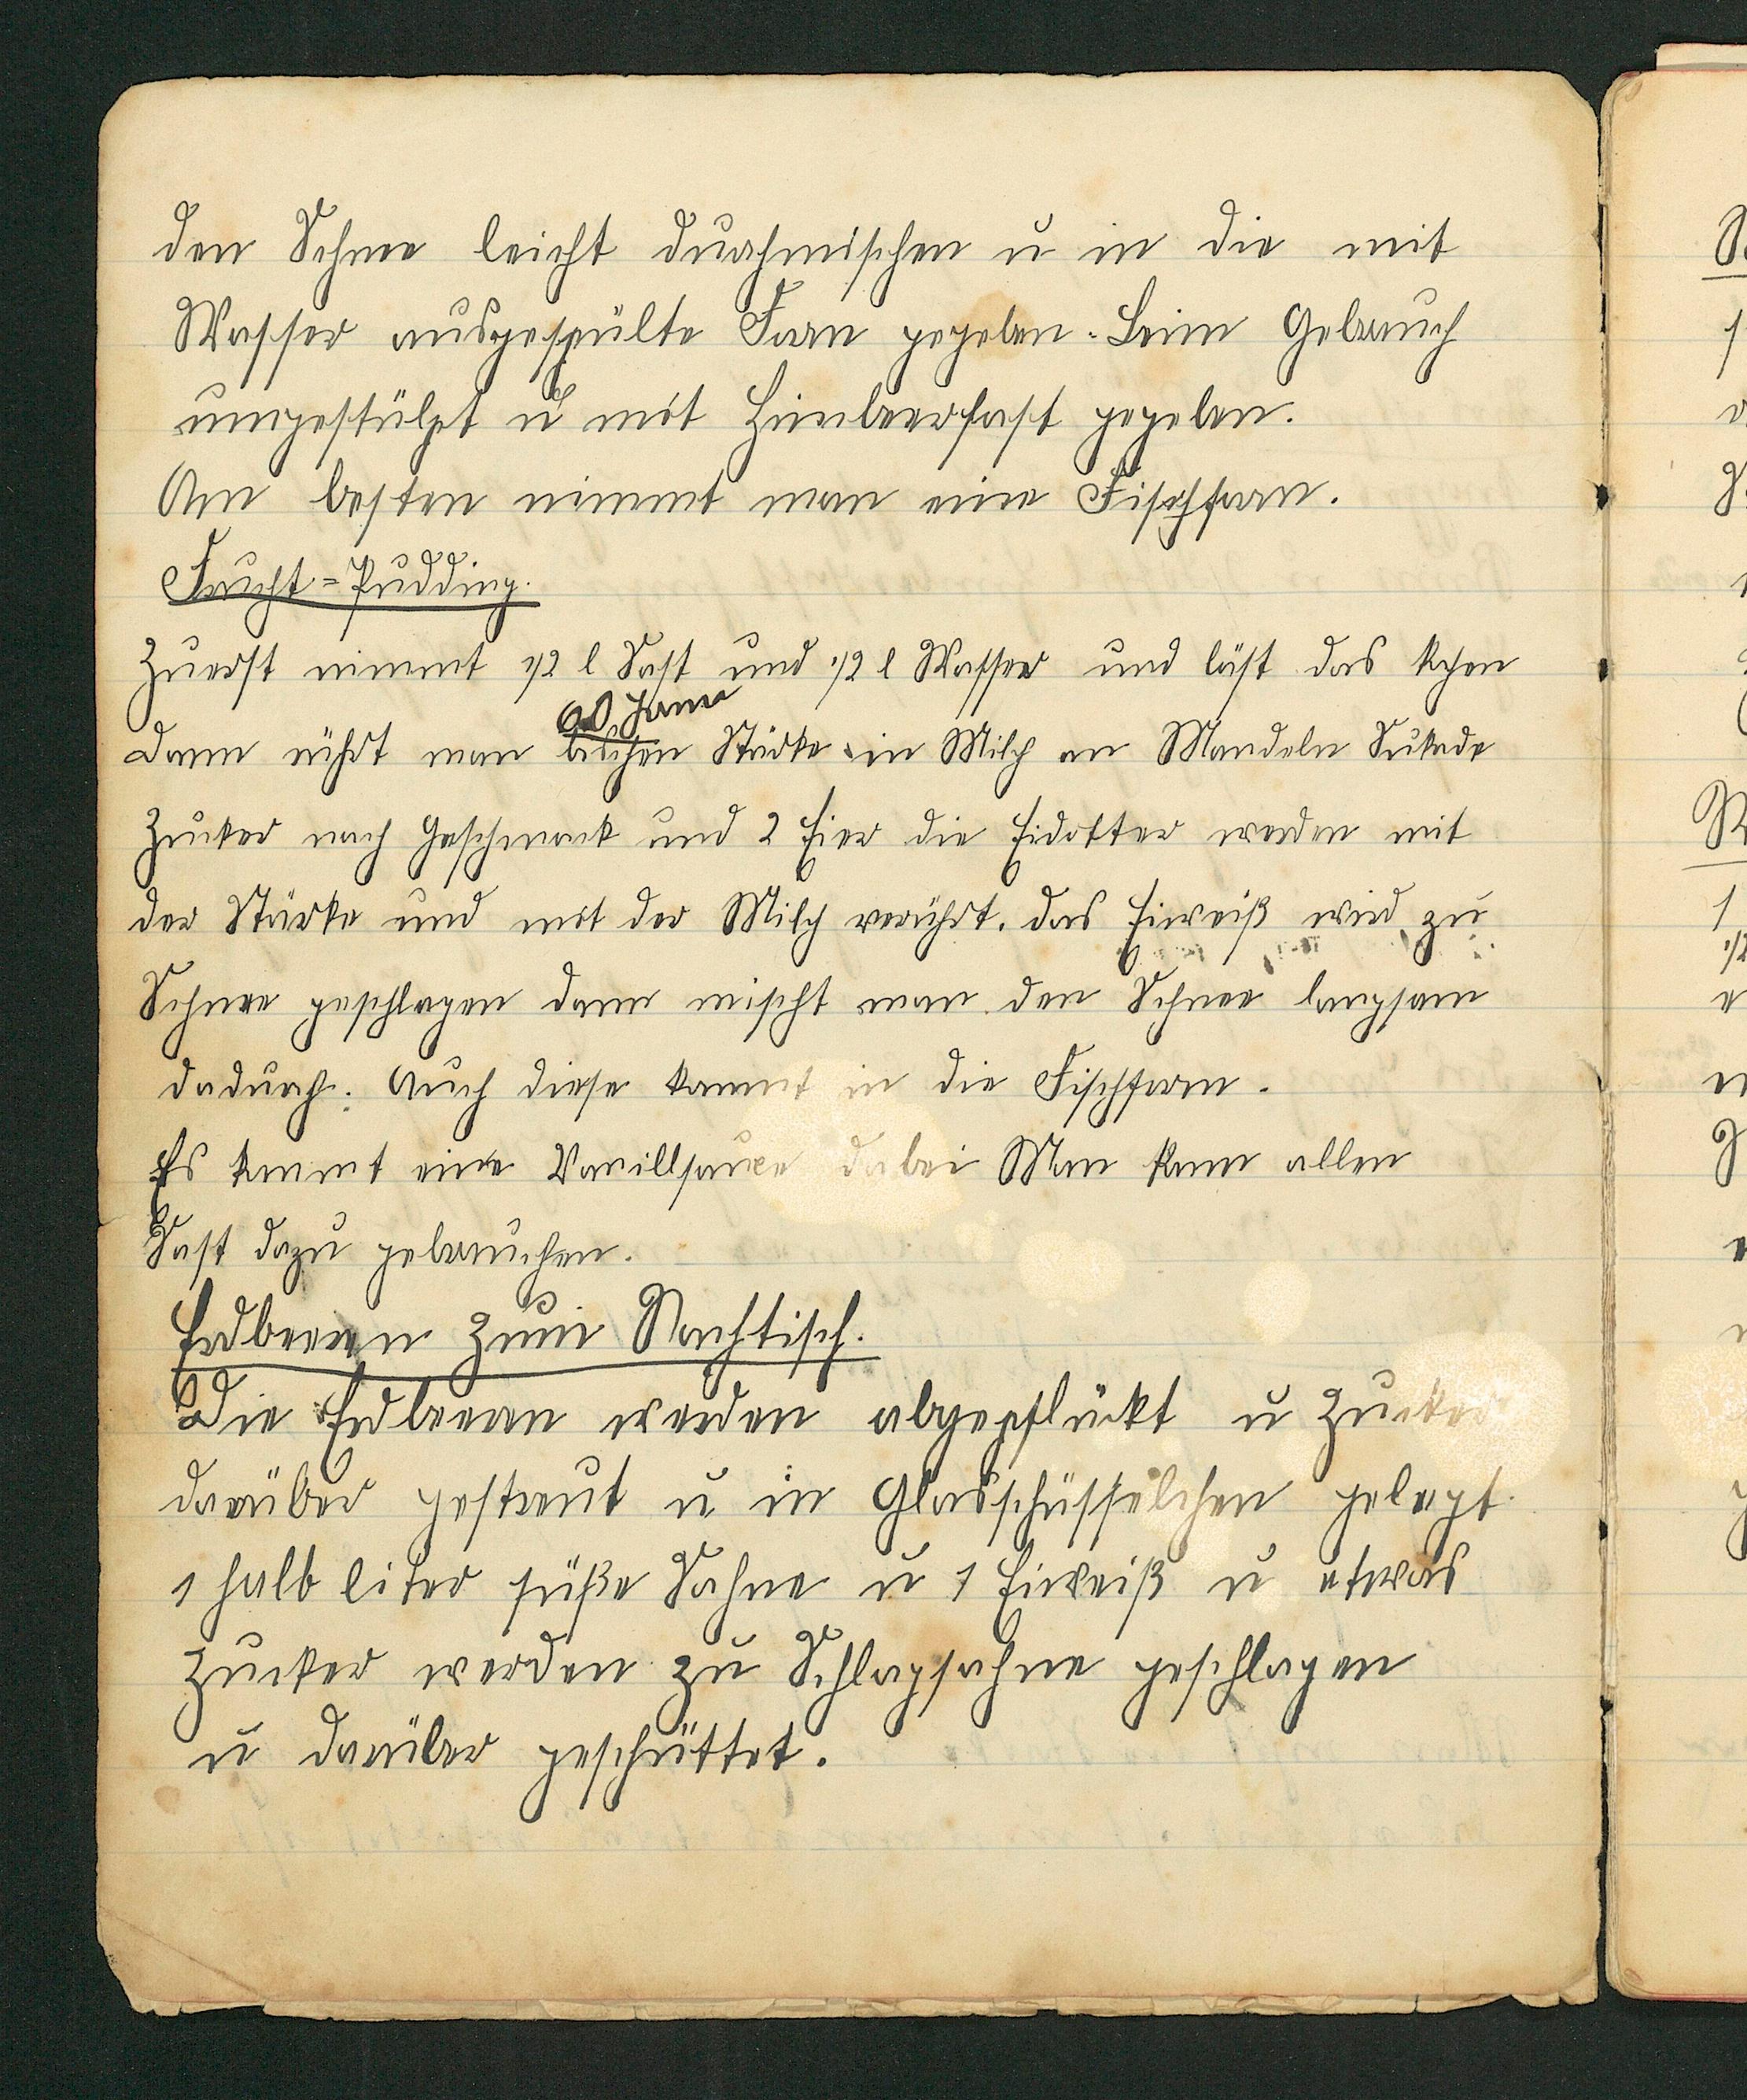 den Schnee leicht durchmischen u in die mit
Wasser ausgespülte Form gegeben. Beim Gebrauch
umgestülpt u mit Himbeersaft gegeben.
Am besten nimmt man eine Fischform.
Frucht=Pudding.
Zuerst nimmt 1/2 l Saft und 1/2 l Wasser und läst das kochen
60 Gram
Dann rührt man bischen Stärke in Milch an Mandeln Sukade
Zucker nach Geschmack und 2 Eier die Eidotter werden mit
der Stärke und mit der Milch verrührt. das Eiweiß wird zu
Schnee geschlagen dann mischt man den Schnee langsam
dadurch. Auch diese kommt in die Fischform.
Es kommt eine Vanillsauce dabei Man kann allen
Saft dazu gebrauchen.
Erdbeeren zum Nachtisch.
Die Erdbeeren werden abgepflückt u Zucker
darüber gestreut u in Glasschüsselchen gelegt.
1 halb liter süße Sahne u 1 Eiweiß u etwas
Zucker werden zu Schlagsahne geschlagen
u darüber geschüttet.